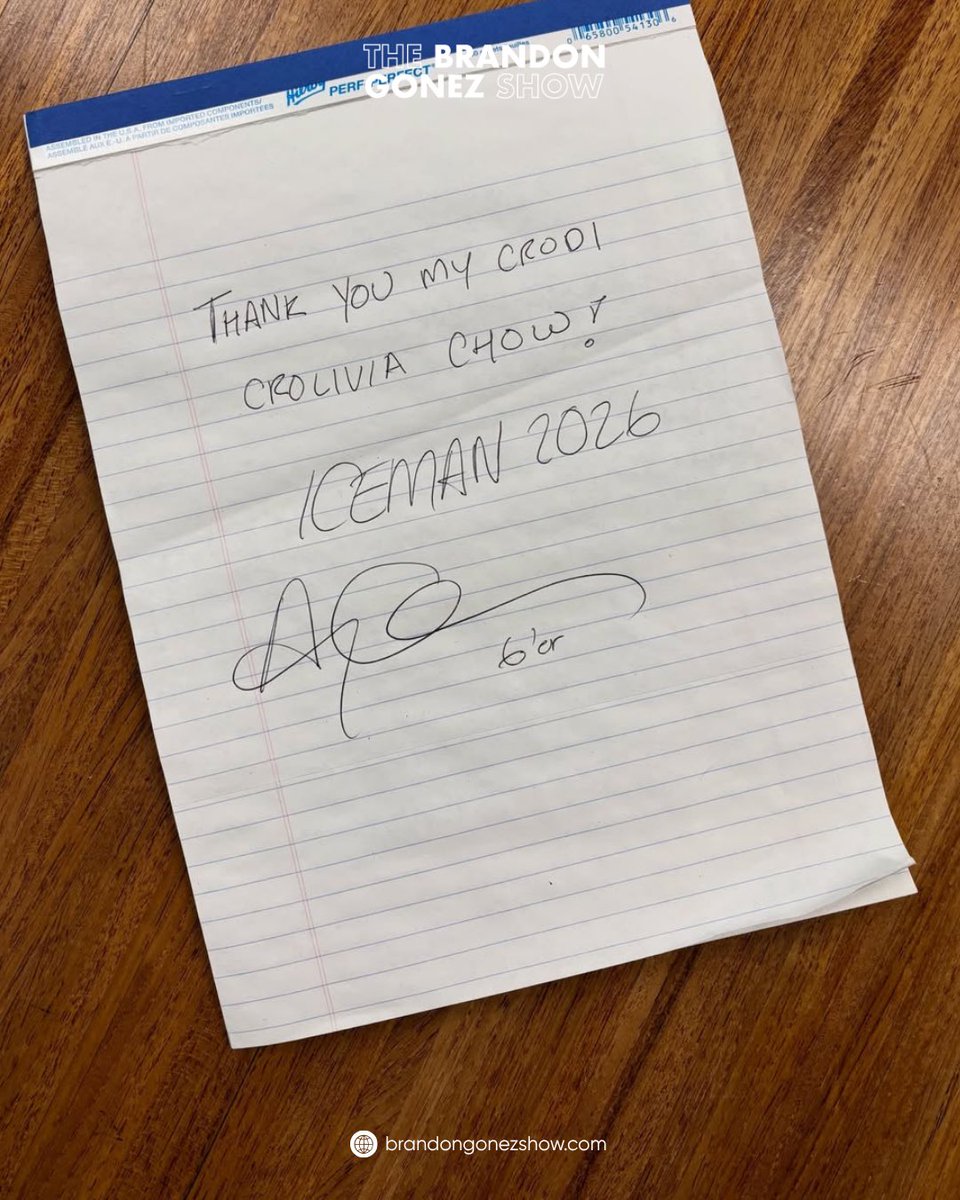 THE BRANDON
GONEZ SHOW
Hilroy
PERF PERFECT
ASSEMBLED IN THE U.S.A. FROM IMPORTED COMPONENTS/
ASSEMBLÉ AUX É.-U. À PARTIR DE COMPOSANTES IMPORTÉES
0 65800 54130 6
THANK YOU MY CRODI
CROLIVIA CHOW!
ICEMAN 2026
6'er
brandongonezshow.com